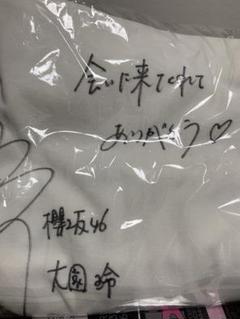 会いに来てくれて
ありがとう♡
櫻坂46
大園玲